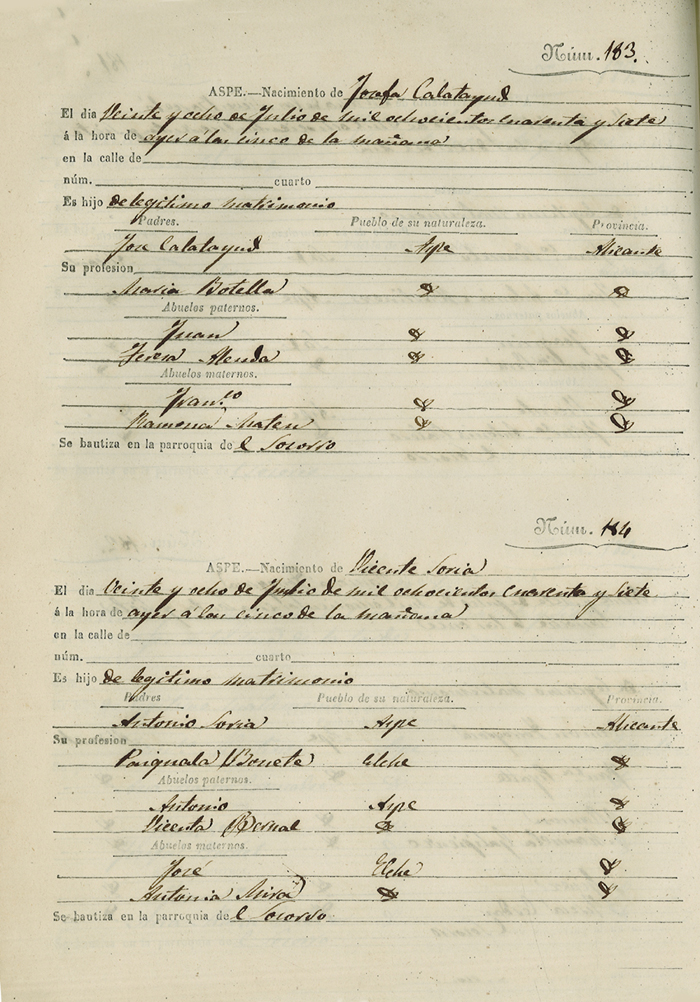 Núm. 183.
ASPE.—Nacimiento de Josefa Calatayud
El dia Veinte y ocho de Julio de mil ochocientos cuarenta y Siete
á la hora de ayer á las cinco de la mañana
en la calle de
núm. cuarto
Es hijo de legitimo matrimonio
Padres. Pueblo de su naturaleza. Provincia.
Jose Calatayud Aspe Alicante
Su profesion
Maria Botella
Abuelos paternos.
Juan
Teresa Alenda
Abuelos maternos.
Fran.co
Ramona
Se bautiza en la parroquia de l Socorro
Núm. 184
ASPE.—Nacimiento de Vicente Soria
El dia Veinte y ocho de Julio de mil ochocientos cuarenta y Siete
á la hora de ayer á las cinco de la mañana
en la calle de
núm. cuarto
Es hijo de legitimo matrimonio
Padres Pueblo de su naturaleza. Provincia.
Antonio Soria Aspe Alicante
Su profesion
Pasquala Bonete Elche
Abuelos paternos.
Antonio Aspe
Vicenta Bernal
Abuelos maternos.
José Elche
Antonia Mira
Se bautiza en la parroquia de l Socorro